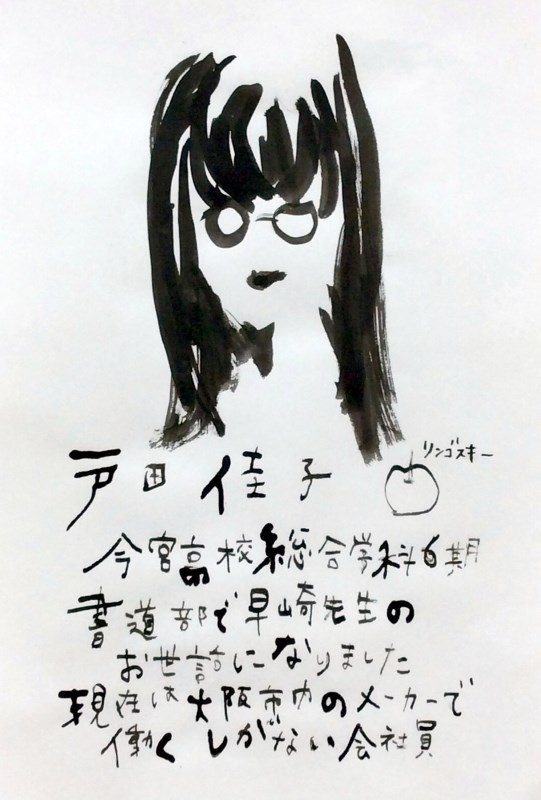 戸田佳子
リンゴスキー
今宮高校総合学科6期
書道部で早崎先生の
お世話になりました
現在は大阪市内のメーカーで
働くしがない会社員